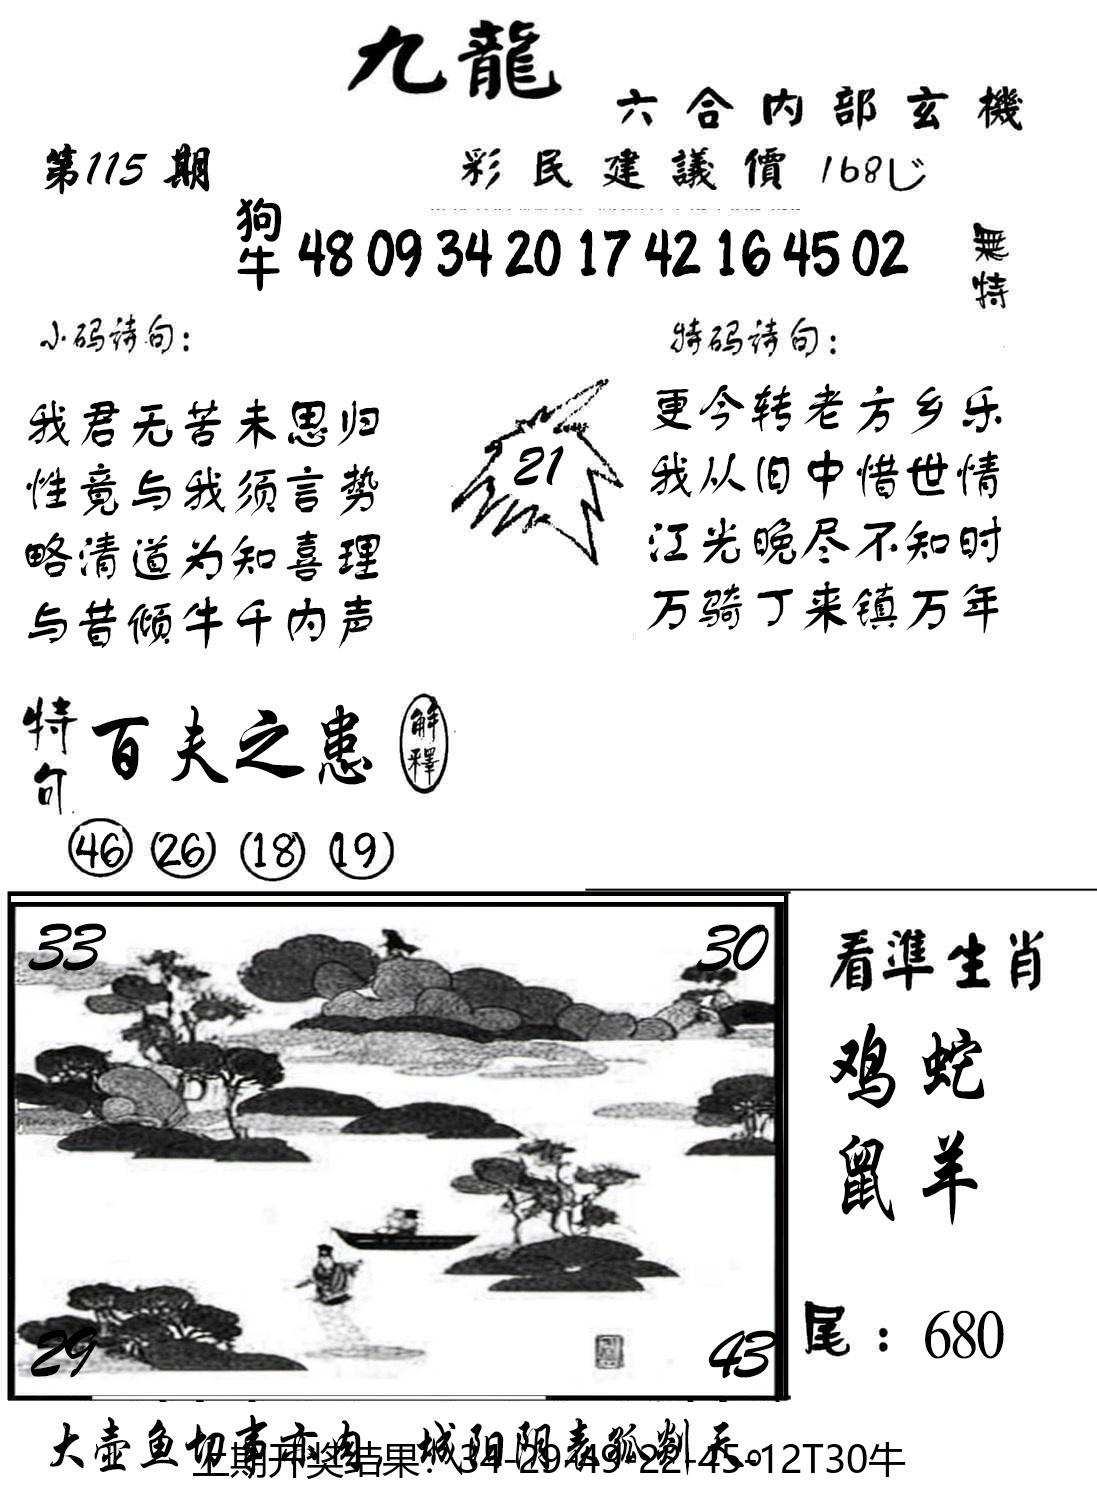 九龍
六合内部玄機
第115期
彩民建議價 168
狗牛 48 09 34 20 17 42 16 45 02
無特
小码诗句：
我君无苦未思归
性竟与我须言势
略清道为知喜理
与昔倾牛千内声
21
特码诗句：
更今转老方乡乐
我从旧中惜世情
江光晚尽不知时
万骑丁来镇万年
特句 百夫之患 解釋
46 26 18 19
33
30
29
43
看準生肖
鸡蛇
鼠羊
尾：680
大壶鱼切事亦肉 城阳阴表孤剡天。
上期开奖结果：34-29-49-22-45-12T30牛